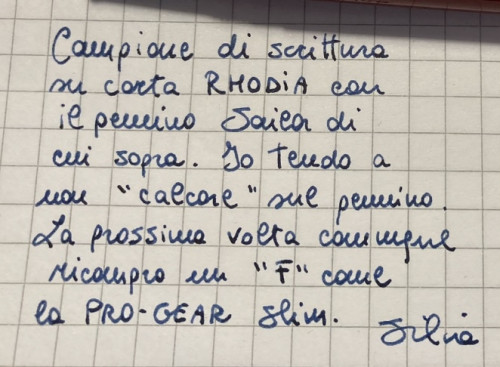 Campione di scrittura
su carta RHODIA con
il pennino Sailor di
cui sopra. Io tendo a
non "calcare" sul pennino.
La prossima volta comunque
ricompro un "F" come
la PRO-GEAR Slim.
Silvia